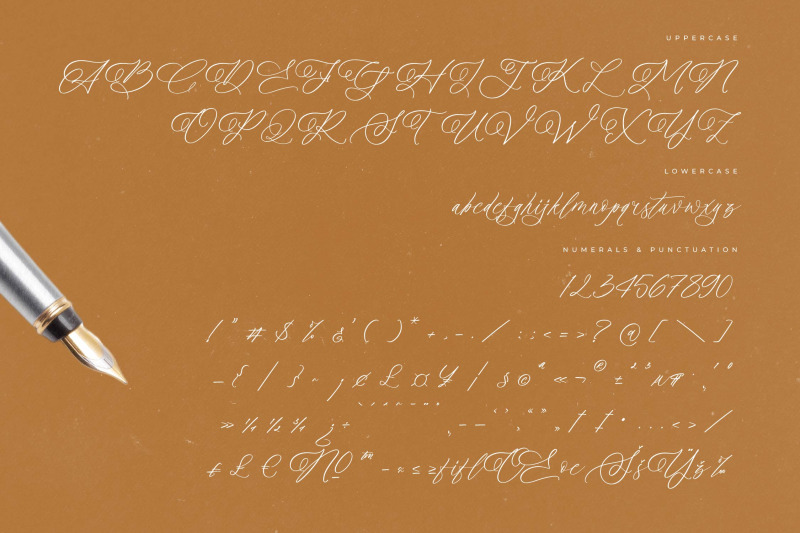 UPPERCASE
ABCDEFGHIJKLMN
OPQRSTUVWXYZ
LOWERCASE
abcdefghijklmnopqrstuvwxyz
NUMERALS & PUNCTUATION
1234567890
! " # $ % & ' ( ) * + , - . / : ; < = > ? @ [ \ ]
_ { | } ~ ¡ ¢ £ ¤ ¥ ¦ § © ª « ¬ ® ± ² ³ µ ¶ · ¸ ¹ º
» ¼ ½ ¾ ¿ ÷
€ № ™ − ≈ ≤ ≥ fi fl Œ œ Š š Ÿ ž ‰